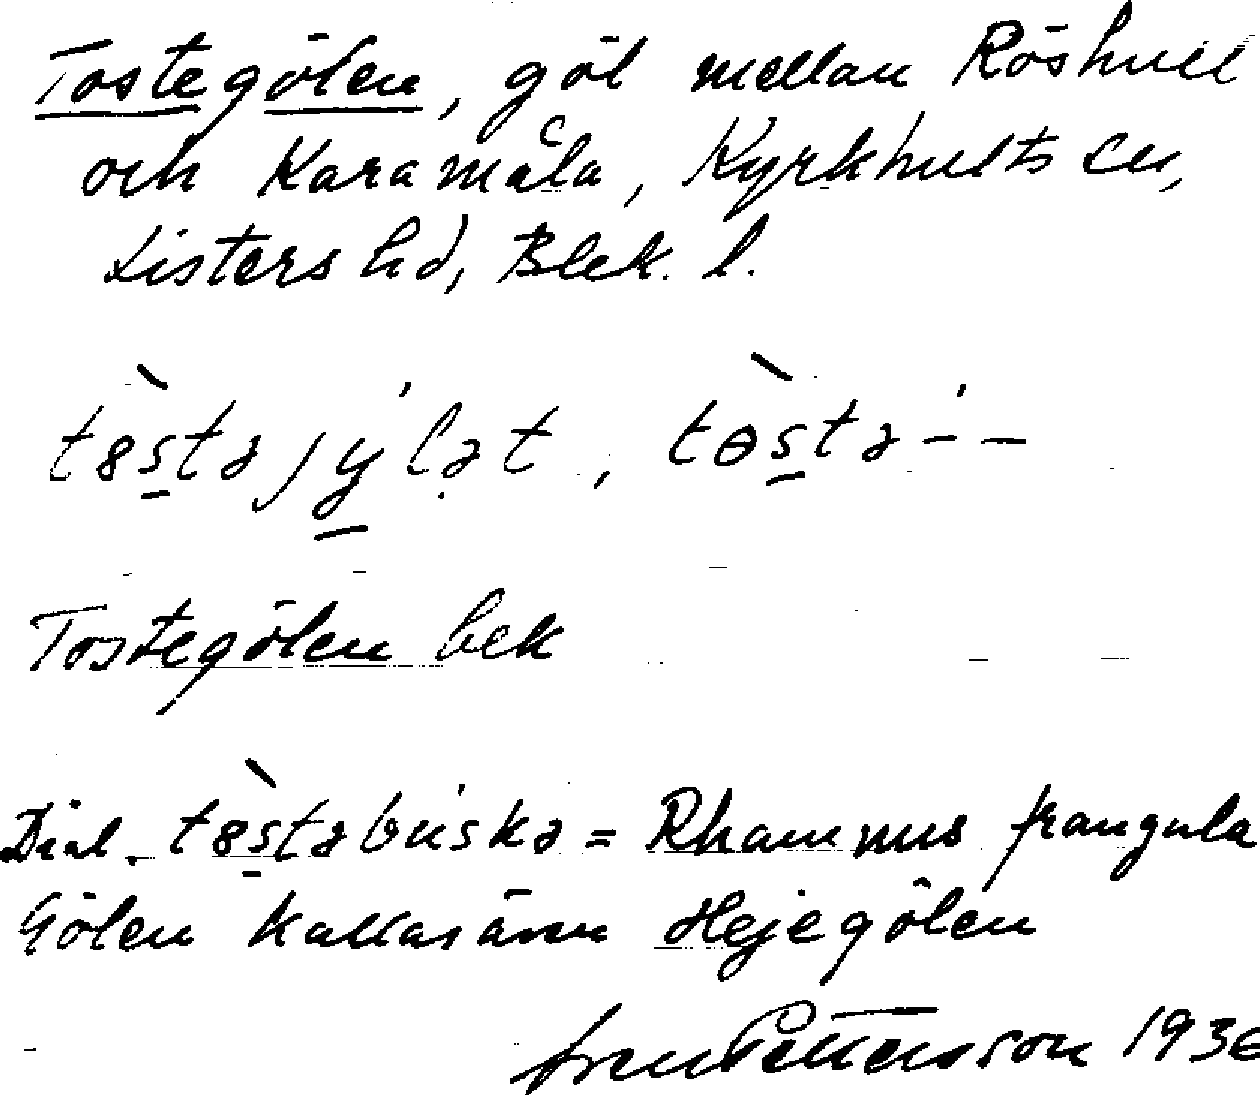 Tostegölen, göl mellan Röshult
och Karamåla, Kyrkhults sn,
Listers hd, Blek. l.
tɵ̀stəjýlət, tɵ̀stə-́-
Tostegölen bek
Dial. tɵ̀stəbúskə = Rhamnus frangula
Gölen kallas även Hejegölen
Pettersson 1936